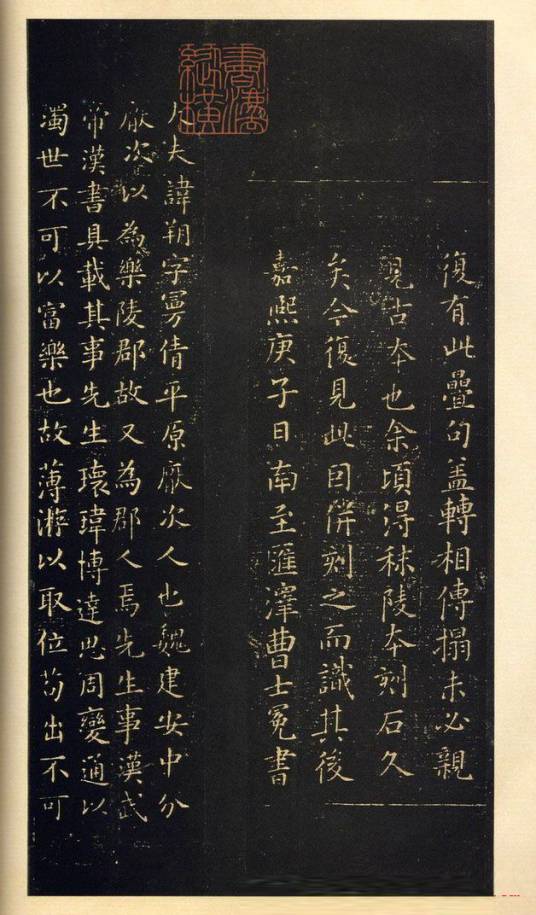 復有此疊句蓋轉相傳搨未必親
見古本也余頃得秣陵本刻石久
矣今復見此因併刻之而識其後
嘉熙庚子日南至匯澤曹士冕書
大夫諱朔字曼倩平原厭次人也魏建安中分
厭次以為樂陵郡故又為郡人焉先生事漢武
帝漢書具載其事先生瓌瑋博達思周變通以
濁世不可以富樂也故薄遊以取位苟出不可